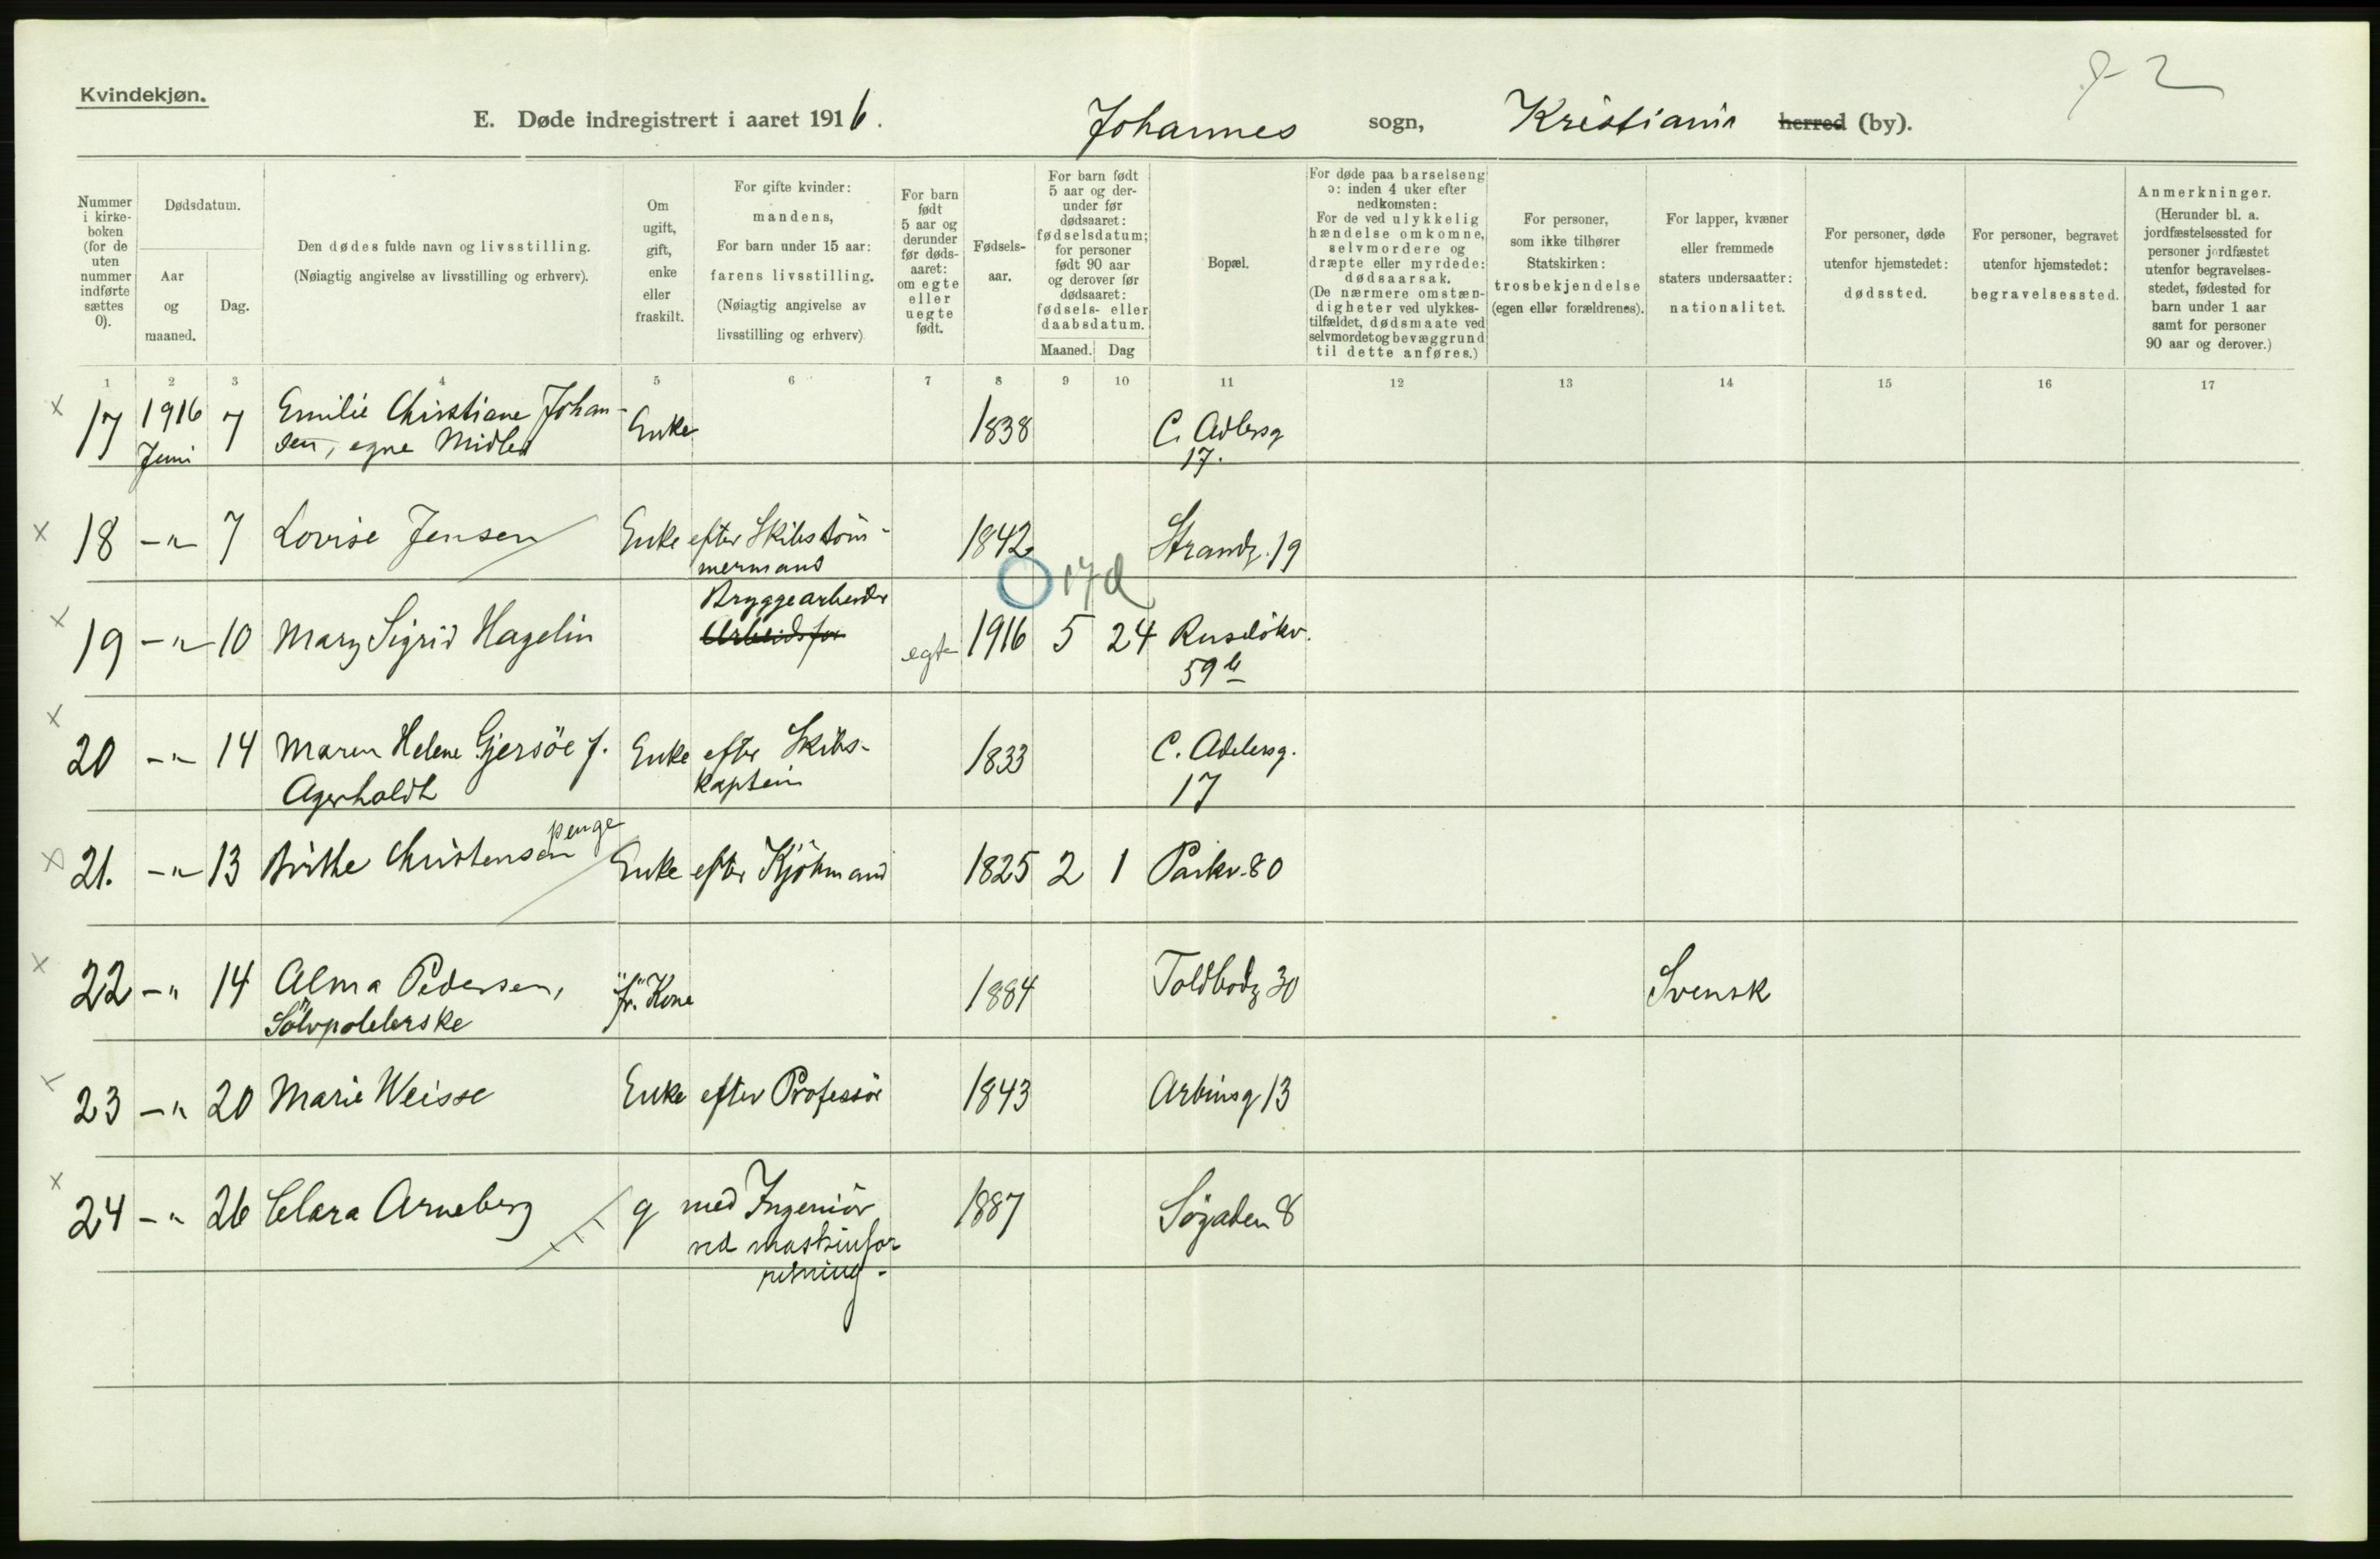 Kvindekjøn.
E. Døde indregistrert i aaret 1916. Johannes sogn, Kristiania herred (by).
Nummer i kirkeboken (for de uten nummer indførte sættes 0).
Dødsdatum.
Aar og maaned.
Dag.
Den dødes fulde navn og livsstilling.
(Nøiagtig angivelse av livsstilling og erhverv).
Om ugift, gift, enke eller fraskilt.
For gifte kvinder: mandens,
For barn under 15 aar: farens livsstilling.
(Nøiagtig angivelse av livsstilling og erhverv)
For barn født 5 aar og derunder før dødsaaret: om egte eller uegte født.
Fødselsaar.
For barn født 5 aar og derunder før dødsaaret: fødselsdatum; for personer født 90 aar og derover før dødsaaret: fødsels- eller daabsdatum.
Maaned. Dag
Bopæl.
For døde paa barselseng ɔ: inden 4 uker efter nedkomsten:
For de ved ulykkelig hændelse omkomne, selvmordere og dræpte eller myrdede: dødsaarsak.
(De nærmere omstændigheter ved ulykkestilfældet, dødsmaate ved selvmordet og bevæggrund til dette anføres.)
For personer, som ikke tilhører Statskirken: trosbekjendelse (egen eller forældrenes).
For lapper, kvæner eller fremmede staters undersaatter: nationalitet.
For personer, døde utenfor hjemstedet: dødssted.
For personer, begravet utenfor hjemstedet: begravelsessted.
Anmerkninger.
(Herunder bl. a. jordfæstelsessted for personer jordfæstet utenfor begravelsesstedet, fødested for barn under 1 aar samt for personer 90 aar og derover.)
1 2 3 4 5 6 7 8 9 10 11 12 13 14 15 16 17
x 17 1916 Juni 7 Emilie Christiane Johan-
sen, egne Midler Enke 1838 C. Adlersg
17.
x 18 -"- 7 Lovise Jensen Enke efter Skibstöm-
mermand 1842 Strandg. 19
17 d
x 19 -"- 10 Mary Sigrid Hagelin Bryggearbeider
Arbeidsfor egte 1916 5 24 Ruselökv.
59 b
x 20 -"- 14 Maren Helene Gjersöe f.
Agerholdt Enke efter Skibs-
kaptein 1833 C. Adelersg.
17
x 21. -"- 13 Birthe Christensen penge Enke efter Kjöbmand 1825 2 1 Parkv. 80
x 22 -" 14 Alma Pedersen,
Sölvpolererske fr. Kone 1884 Toldbodg 30 Svensk
x 23 -" 20 Marie Weisse Enke efter Professor 1843 Arbinsg 13
x 24 -" 26 Clara Arneberg g med Ingeniör
ved maskinfor-
retning. 1887 Sögaden 8